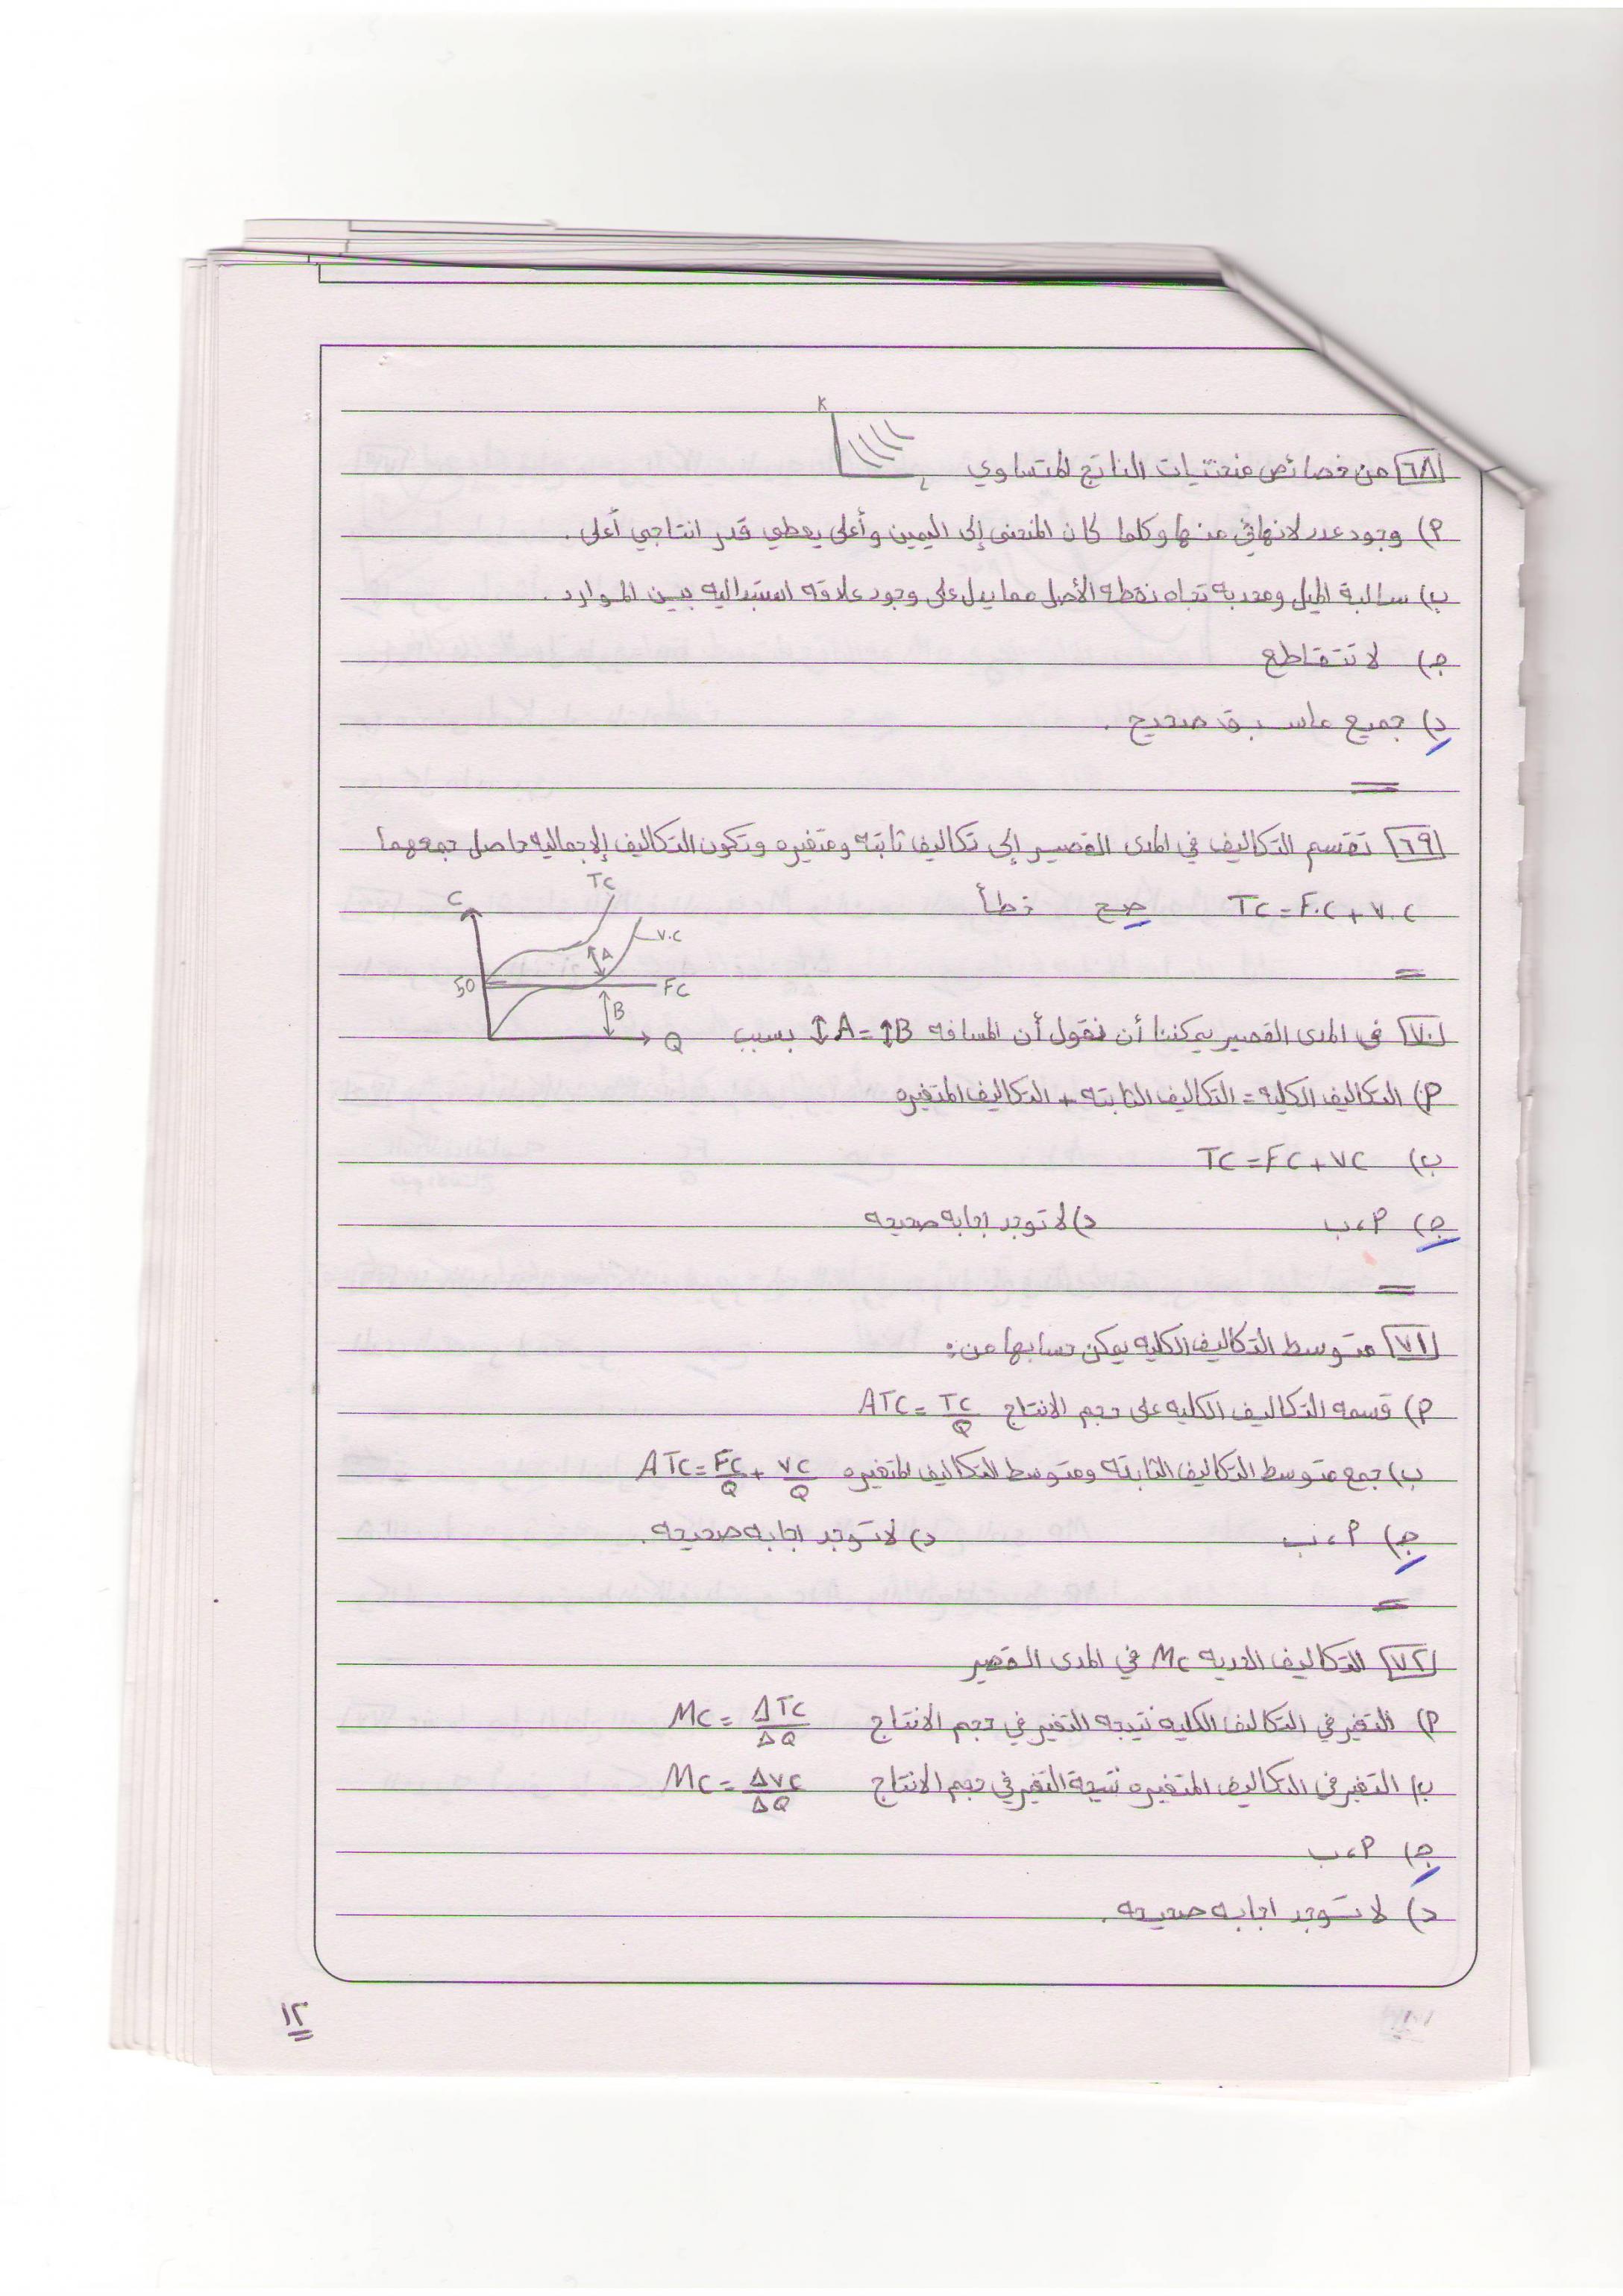 K
٦٨ من خصائص منحنيات الناتج المتساوي
L
أ) وجود عدد لانهائي منها وكلما كان المنحنى إلى اليمين وأعلى يعطي قدر انتاجي أعلى.
ب) سالبة الميل ومحدبة تجاه نقطه الأصل مما يدل على وجود علاقه استبداليه بين الموارد.
ج) لا تتقاطع
د) جميع ماسبق صحيح.
٦٩ تقسم التكاليف في المدى القصير إلى تكاليف ثابته ومتغيره وتكون التكاليف الإجماليه حاصل جمعهما
TC = F.C + V.C صح خطأ
C TC
V.C
A
50 FC
B
Q
٧٠ في المدى القصير يمكننا أن نقول أن المسافه ↕A = ↕B بسبب
أ) التكاليف الكليه = التكاليف الثابته + التكاليف المتغيره
ب) TC = FC + VC
ج) أ، ب د) لا توجد اجابه صحيحه
٧١ متوسط التكاليف الكليه يمكن حسابها من:
أ) قسمه التكاليف الكليه على حجم الانتاج ATC = TC/Q
ب) جمع متوسط التكاليف الثابته ومتوسط التكاليف المتغيره ATC = FC/Q + VC/Q
ج) أ، ب د) لا توجد اجابه صحيحه.
٧٢ التكاليف الحديه MC في المدى القصير
أ) التغير في التكاليف الكليه نتيجه التغير في حجم الانتاج MC = ΔTC/ΔQ
ب) التغير في التكاليف المتغيره نتيجة التغير في حجم الانتاج MC = ΔVC/ΔQ
ج) أ، ب
د) لا توجد اجابه صحيحه.
١٢